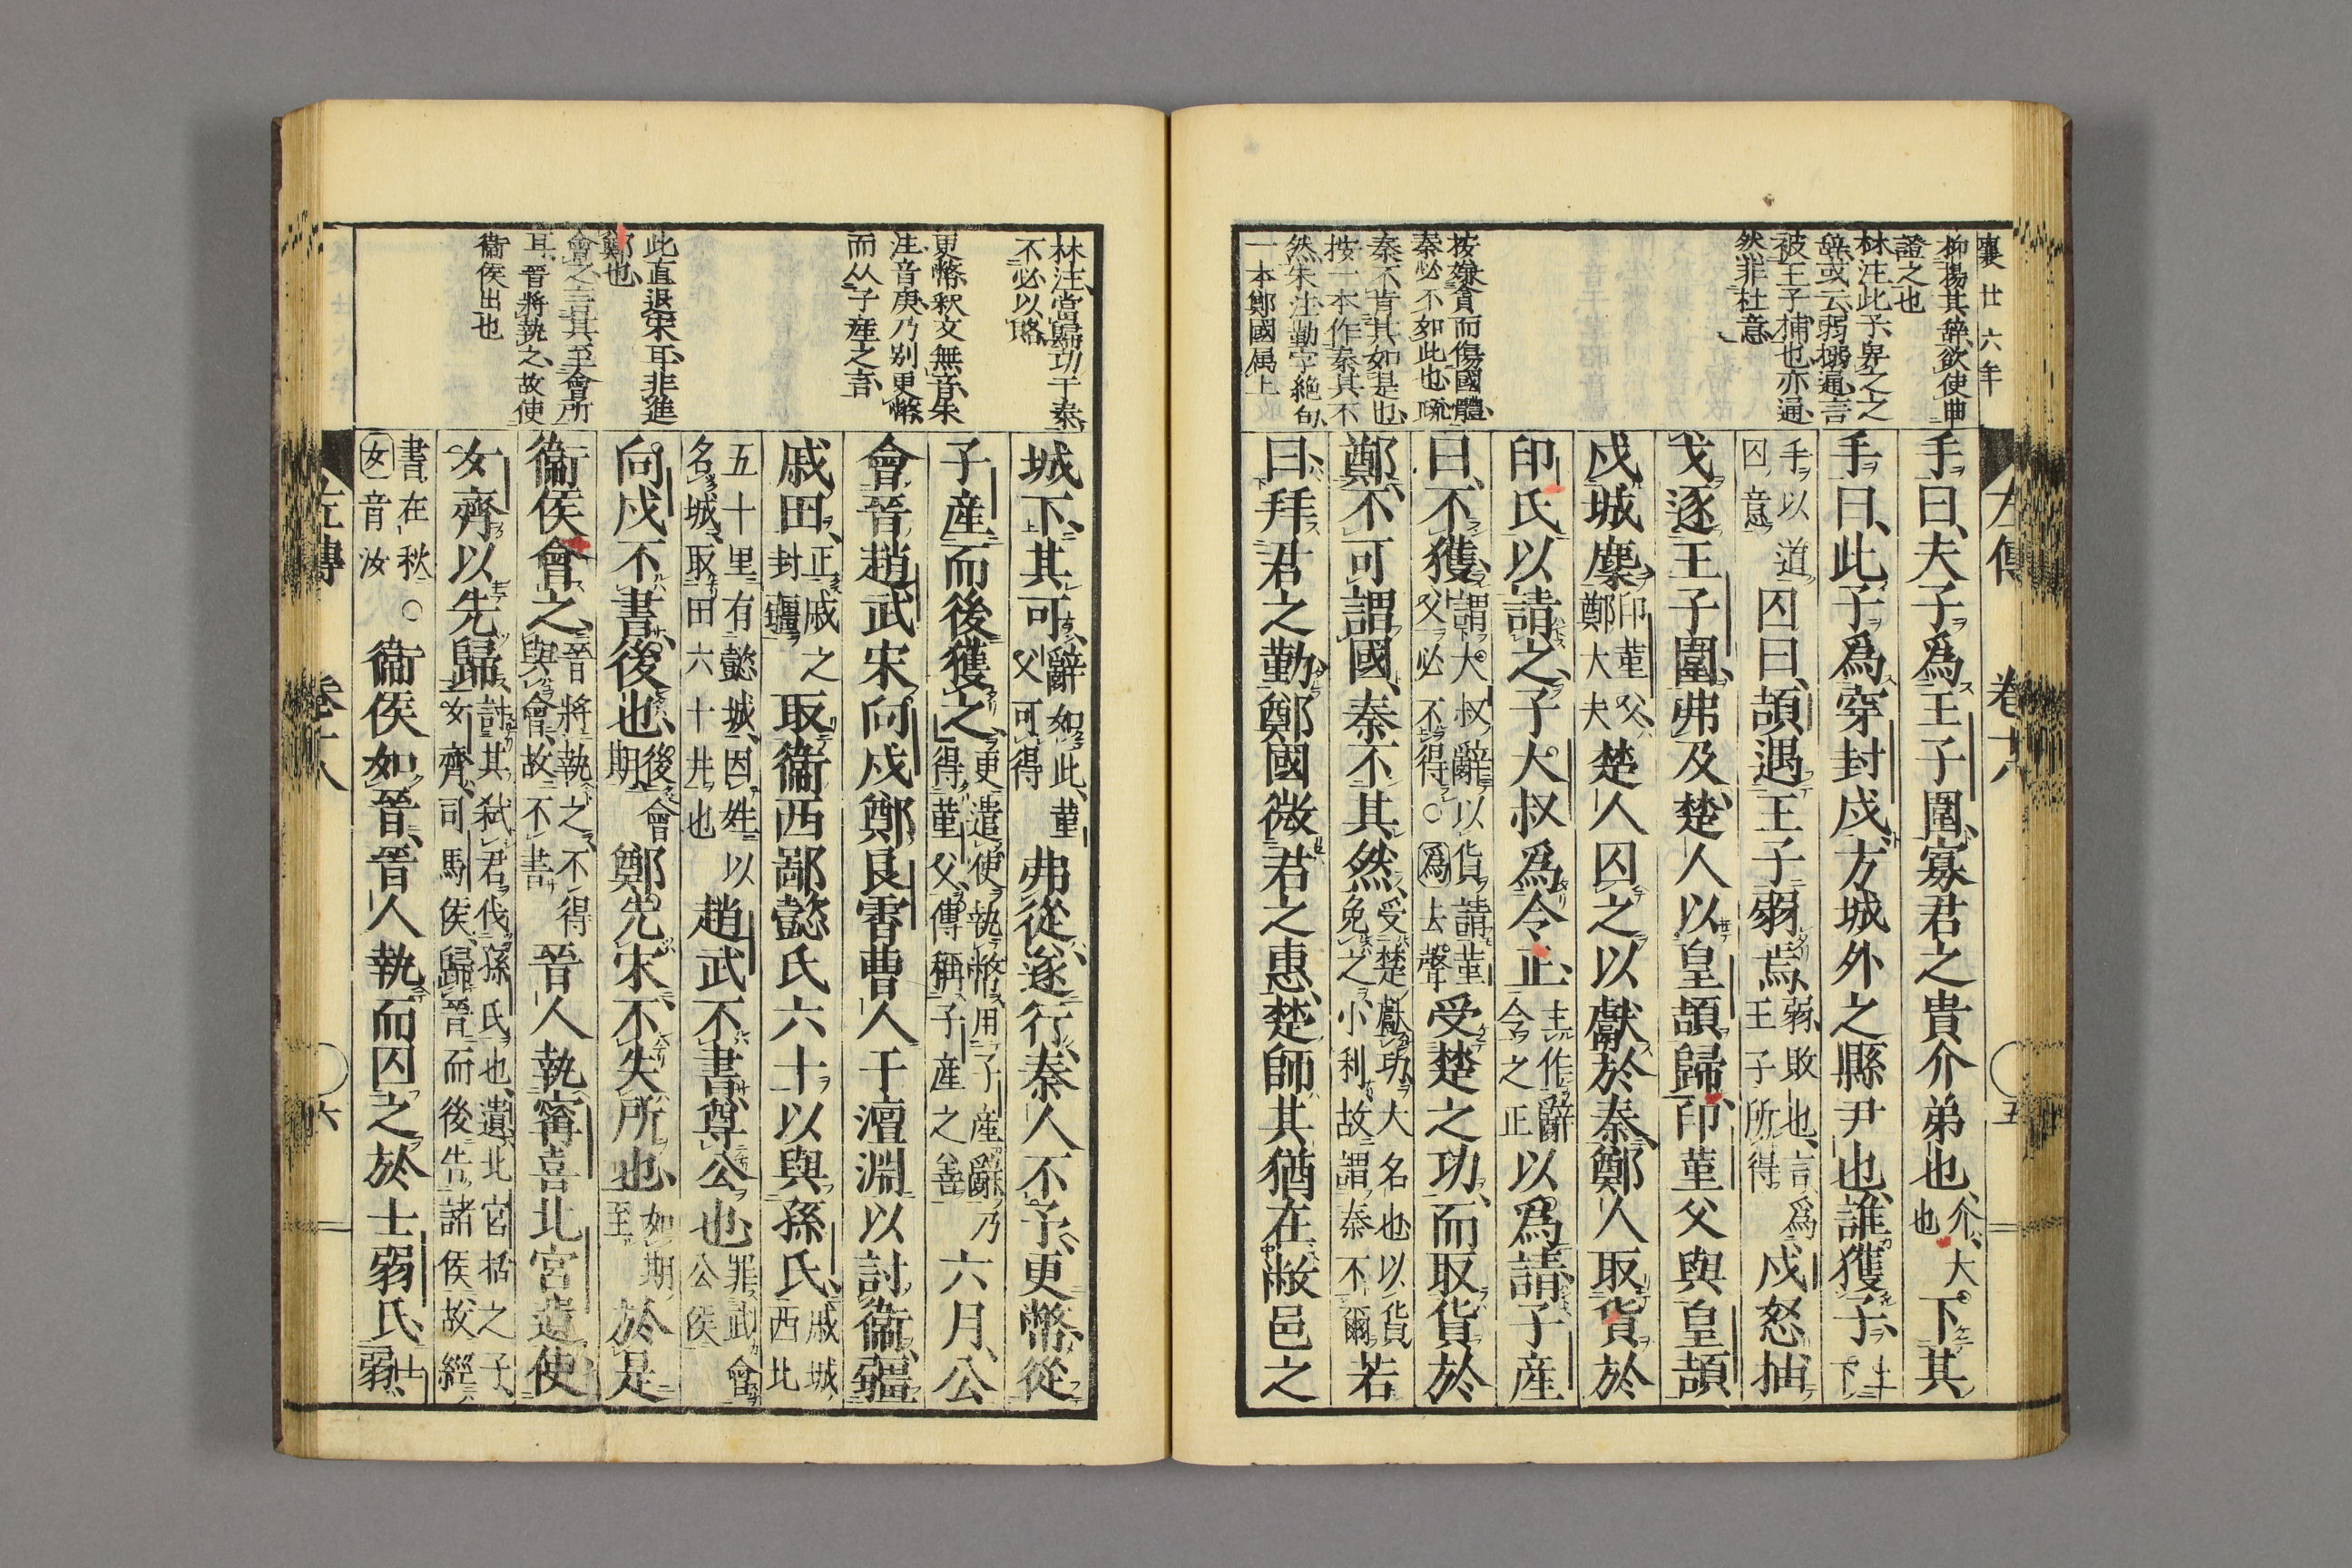 襄廿六年
抑揚其辭欲使曲
證之也
林注此子畀之之
辭或云弱搦通言
被王子捕也亦通
然非杜意
按嫌貪而傷國體
秦必不如此也疏
秦不肯其如是也
按一本作秦其不
然朱注勤字絶句
一本鄭國属上
左傳 卷十八 五
手曰夫子爲王子圍寡君之貴介弟也介大也下其
手曰此子爲穿封戌方城外之縣尹也誰獲子上下
手以道囚意囚曰頡遇王子弱焉弱敗也言爲王子所得戌怒抽
戈逐王子圍弗及楚人以皇頡歸印菫父與皇頡
戍城麇印菫父鄭大夫楚人囚之以獻於秦鄭人取貨於
印氏以請之子大叔爲令正主作辭令之正以爲請子産
曰不獲謂大叔辭以貨請菫父必不得○爲去聲受楚之功而取貨於
鄭不可謂國秦不其然受楚獻功大名也以貨免之小利故謂秦不爾若
曰拜君之勤鄭國微君之惠楚師其猶在敝邑之
林注當歸功于秦
不必以賂
更幣釈文無音朱
注音庚乃别更幣
而从子産之言
此直退宋耳非進
鄭也
會之言其至會所
耳晉將執之故使
衞侯出也
城下其可辭如此菫父可得弗從遂行秦人不予更幣從
子産而後獲之更遣使執幣用子産辭乃得菫父傳稱子産之善六月公
會晉趙武宋向戌鄭良霄曹人于澶淵以討衞疆
戚田正戚之封疆取衞西鄙懿氏六十以與孫氏戚城西北
五十里有懿城因姓以名城取田六十井也趙武不書尊公也罪武會公侯
向戌不書後也後會期鄭先宋不失所也如期至於是
衞侯會之晉將執之不得與會故不書晉人執甯喜北宮遺使
女齊以先歸討其弑君伐孫氏也遺北宮括之子女齊司馬侯歸晉而後告諸侯故經
書在秋○女音汝衞侯如晉晉人執而囚之於士弱氏士弱
左傳 卷十八 六